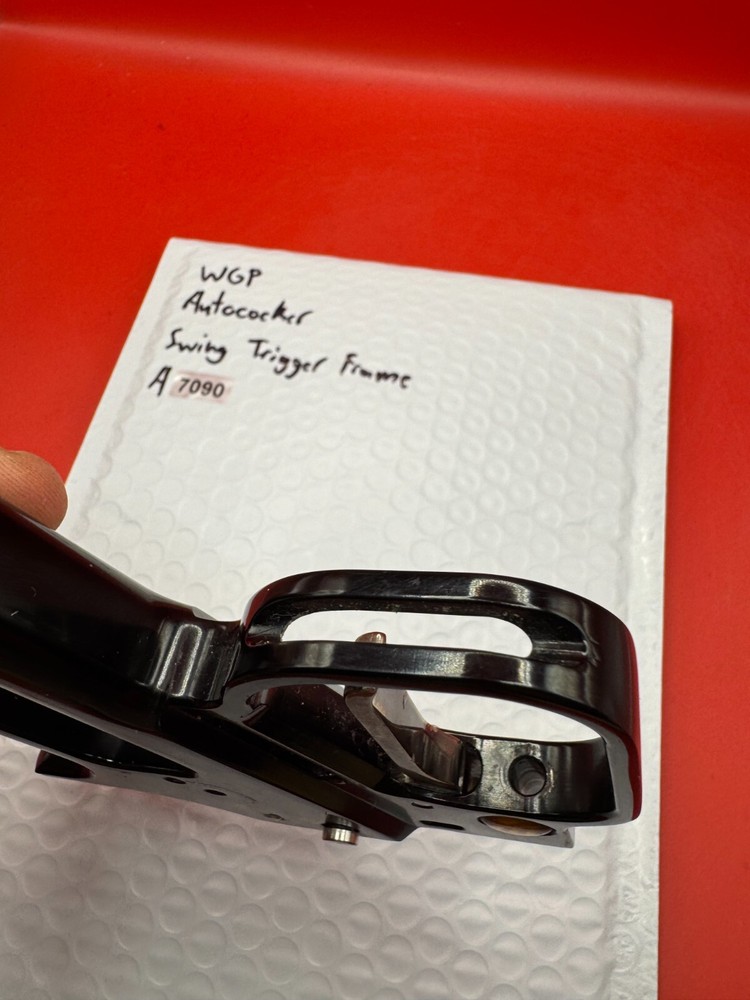 WGP
Autococker
Swing Trigger Frame
A 7090